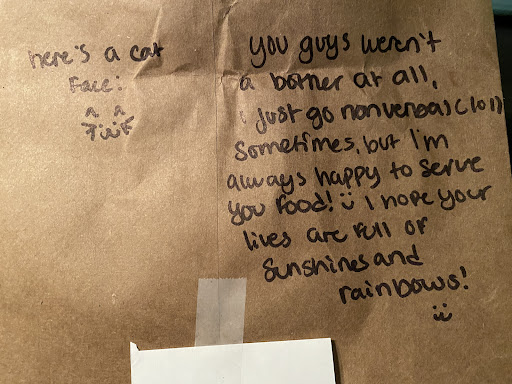 here's a cat
Face:
^ ^
TwT
You guys weren't
a bother at all,
i just go nonverbal (lol)
Sometimes, but I'm
always happy to serve
you food! :) I hope your
lives are full of
Sunshines and
rainbows!
:)